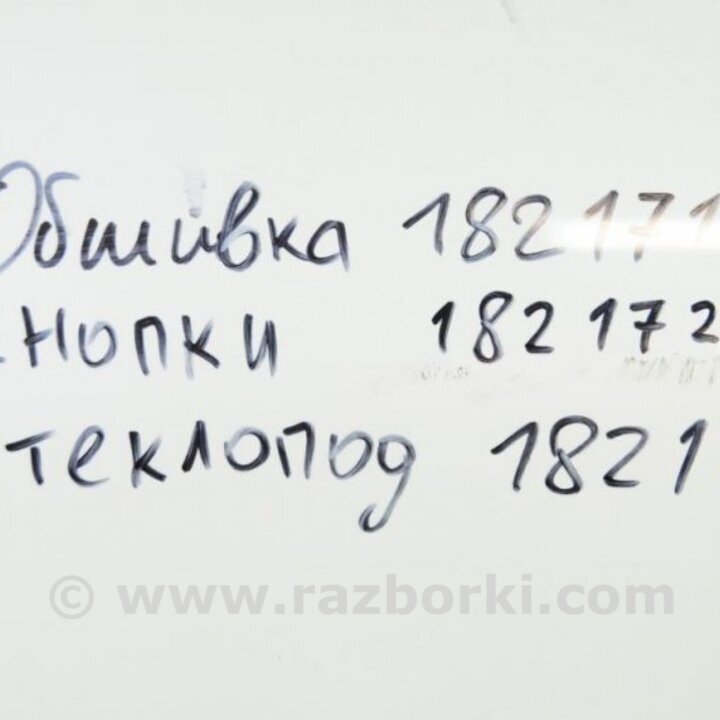 Обшивка 182171
кнопки 182172
теклопод 1821
© www.razborki.com